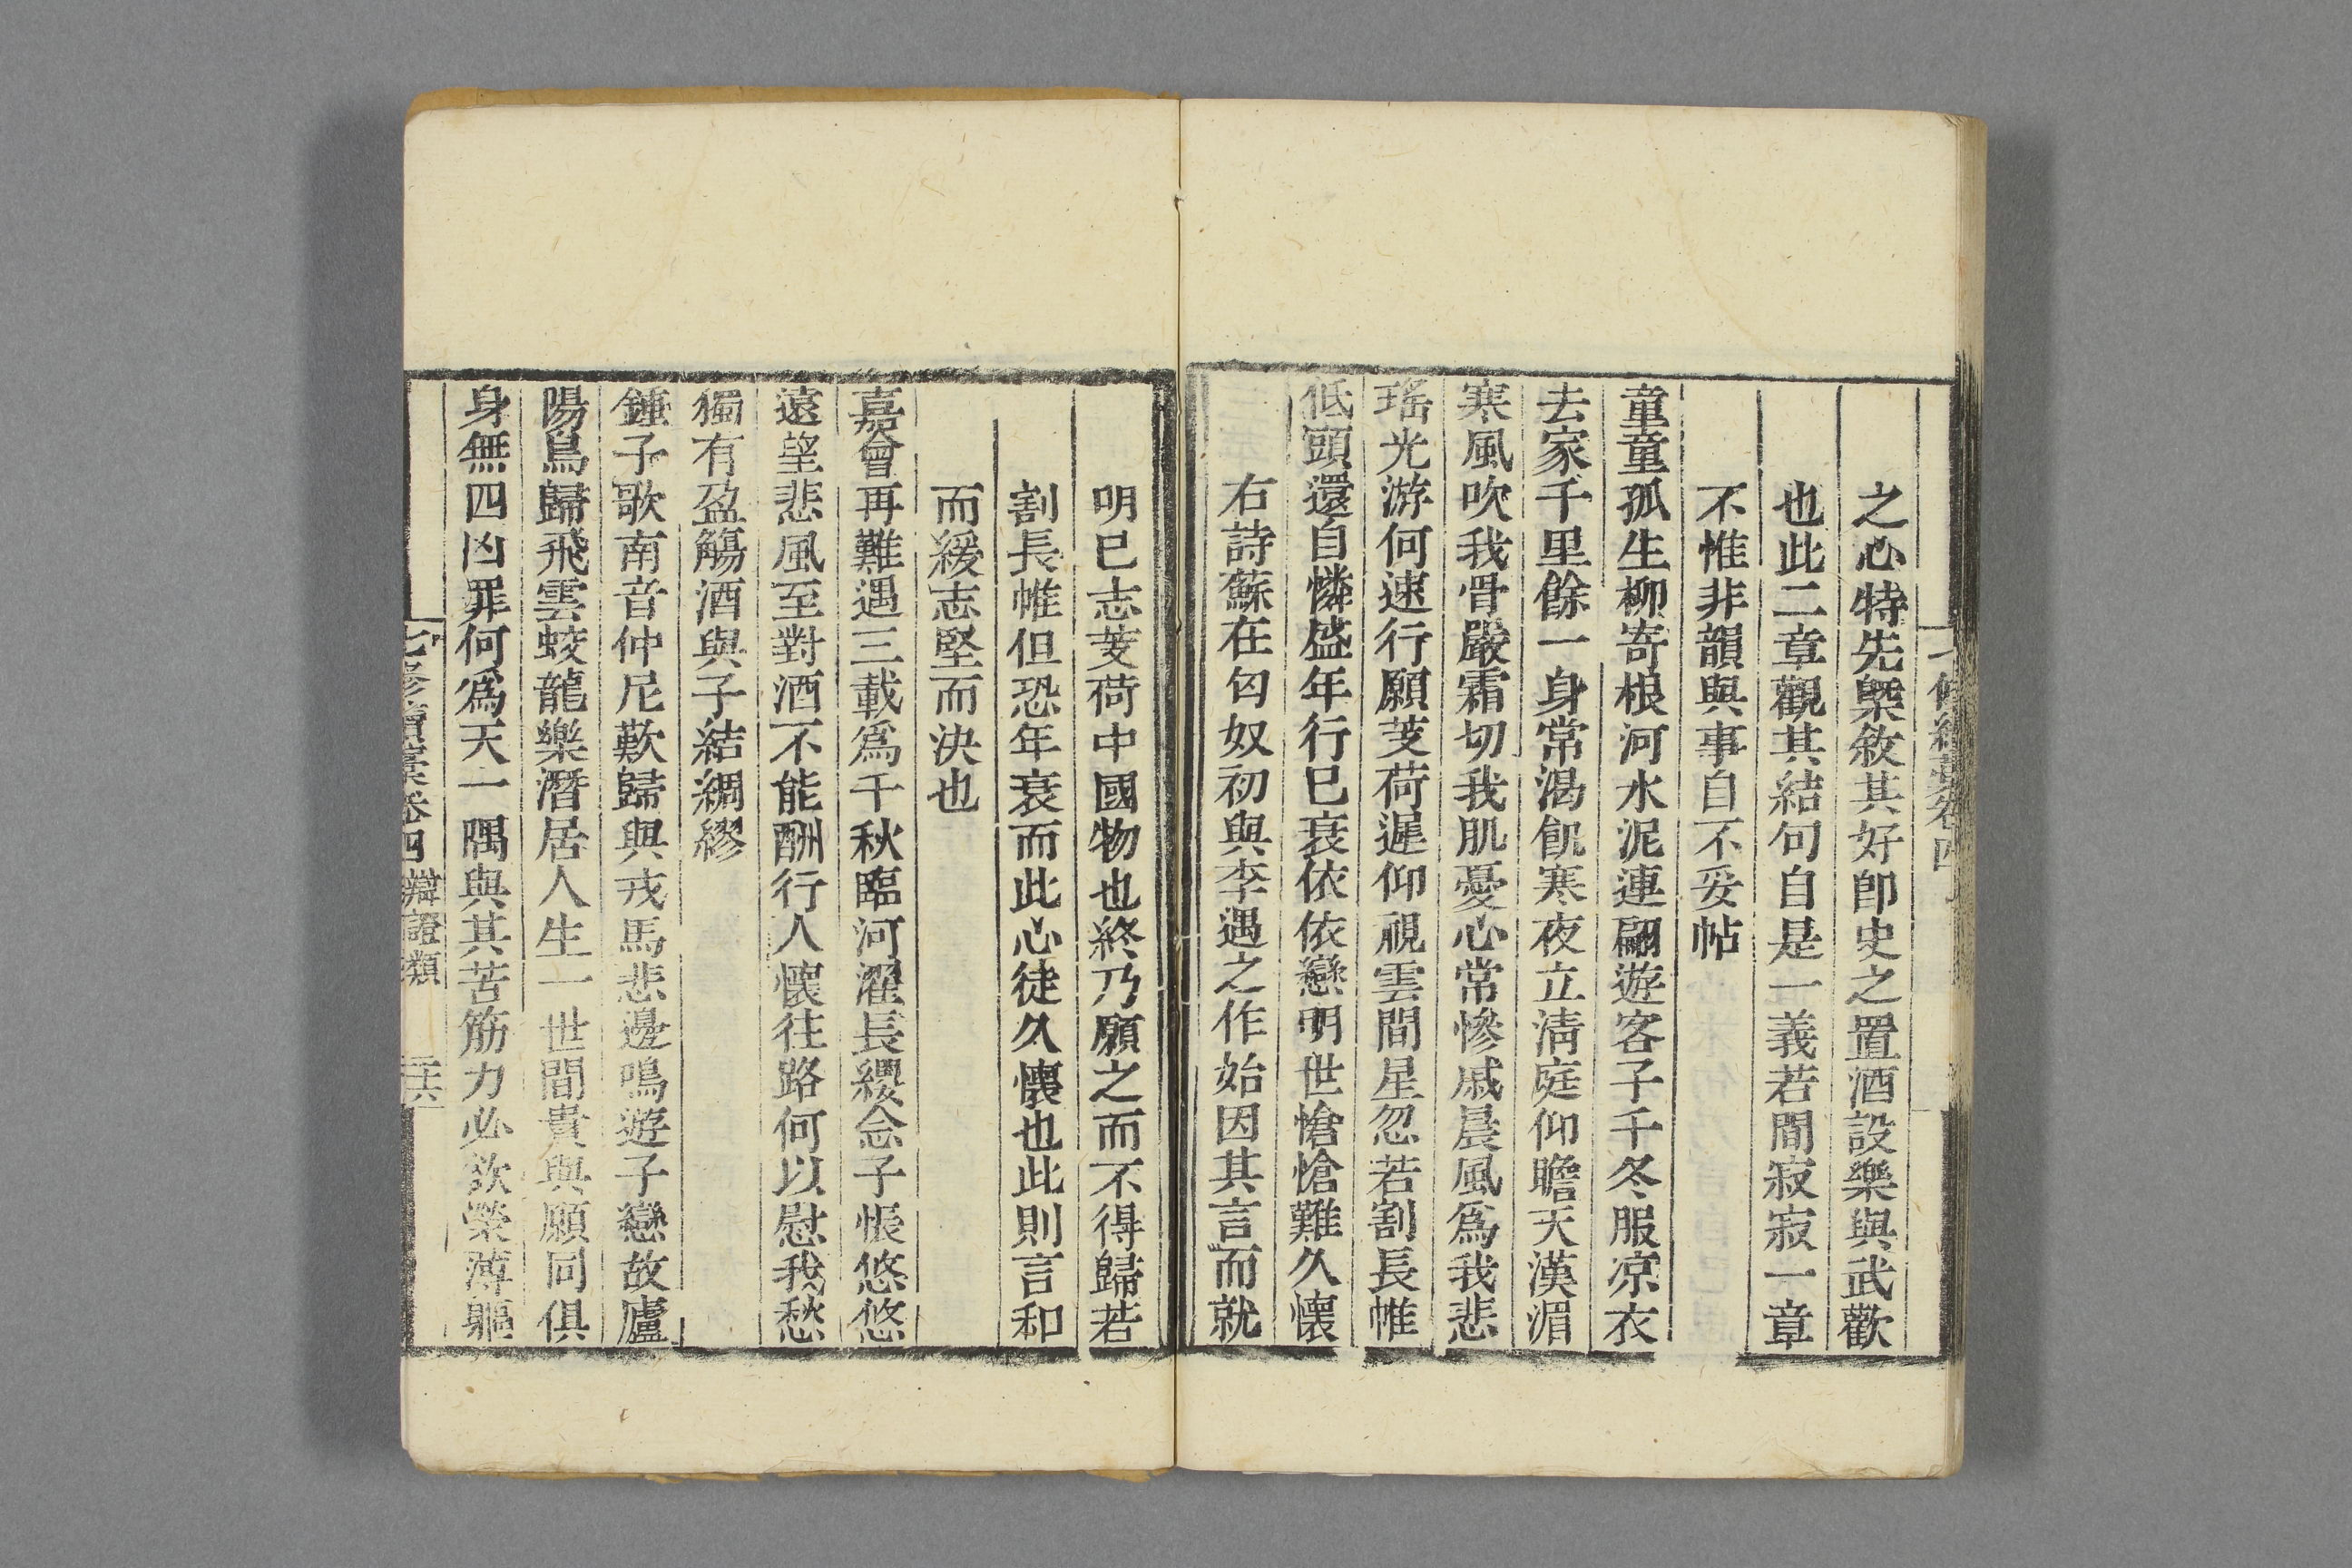 之心特先槩敘其好卽史之置酒設樂與武歡
也此二章觀其結句自是一義若間寂寂一章
不惟非韻與事自不妥帖
童童孤生柳寄根河水泥連翩遊客子千冬服凉衣
去家千里餘一身常渴飢寒夜立淸庭仰瞻天漢湄
寒風吹我骨嚴霜切我肌憂心常慘戚晨風爲我悲
瑤光游何速行願芰荷遲仰視雲間星忽若割長帷
低頭還自憐盛年行巳衰依依戀明世愴愴難久懷
右詩蘇在匈奴初與李遇之作始因其言而就
明巳志芰荷中國物也終乃願之而不得歸若
割長帷但恐年衰而此心徒久懷也此則言和
而緩志堅而決也
嘉會再難遇三載爲千秋臨河濯長纓念子悵悠悠
遠望悲風至對酒不能酬行人懷往路何以慰我愁
獨有盈觴酒與子結綢繆
鍾子歌南音仲尼歎歸與戎馬悲邊鳴遊子戀故廬
陽鳥歸飛雲蛟龍樂潛居人生一世間貴與願同俱
身無四凶罪何爲天一隅與其苦筋力必欲榮薄軀
七修續稾卷四 辯證類 二六